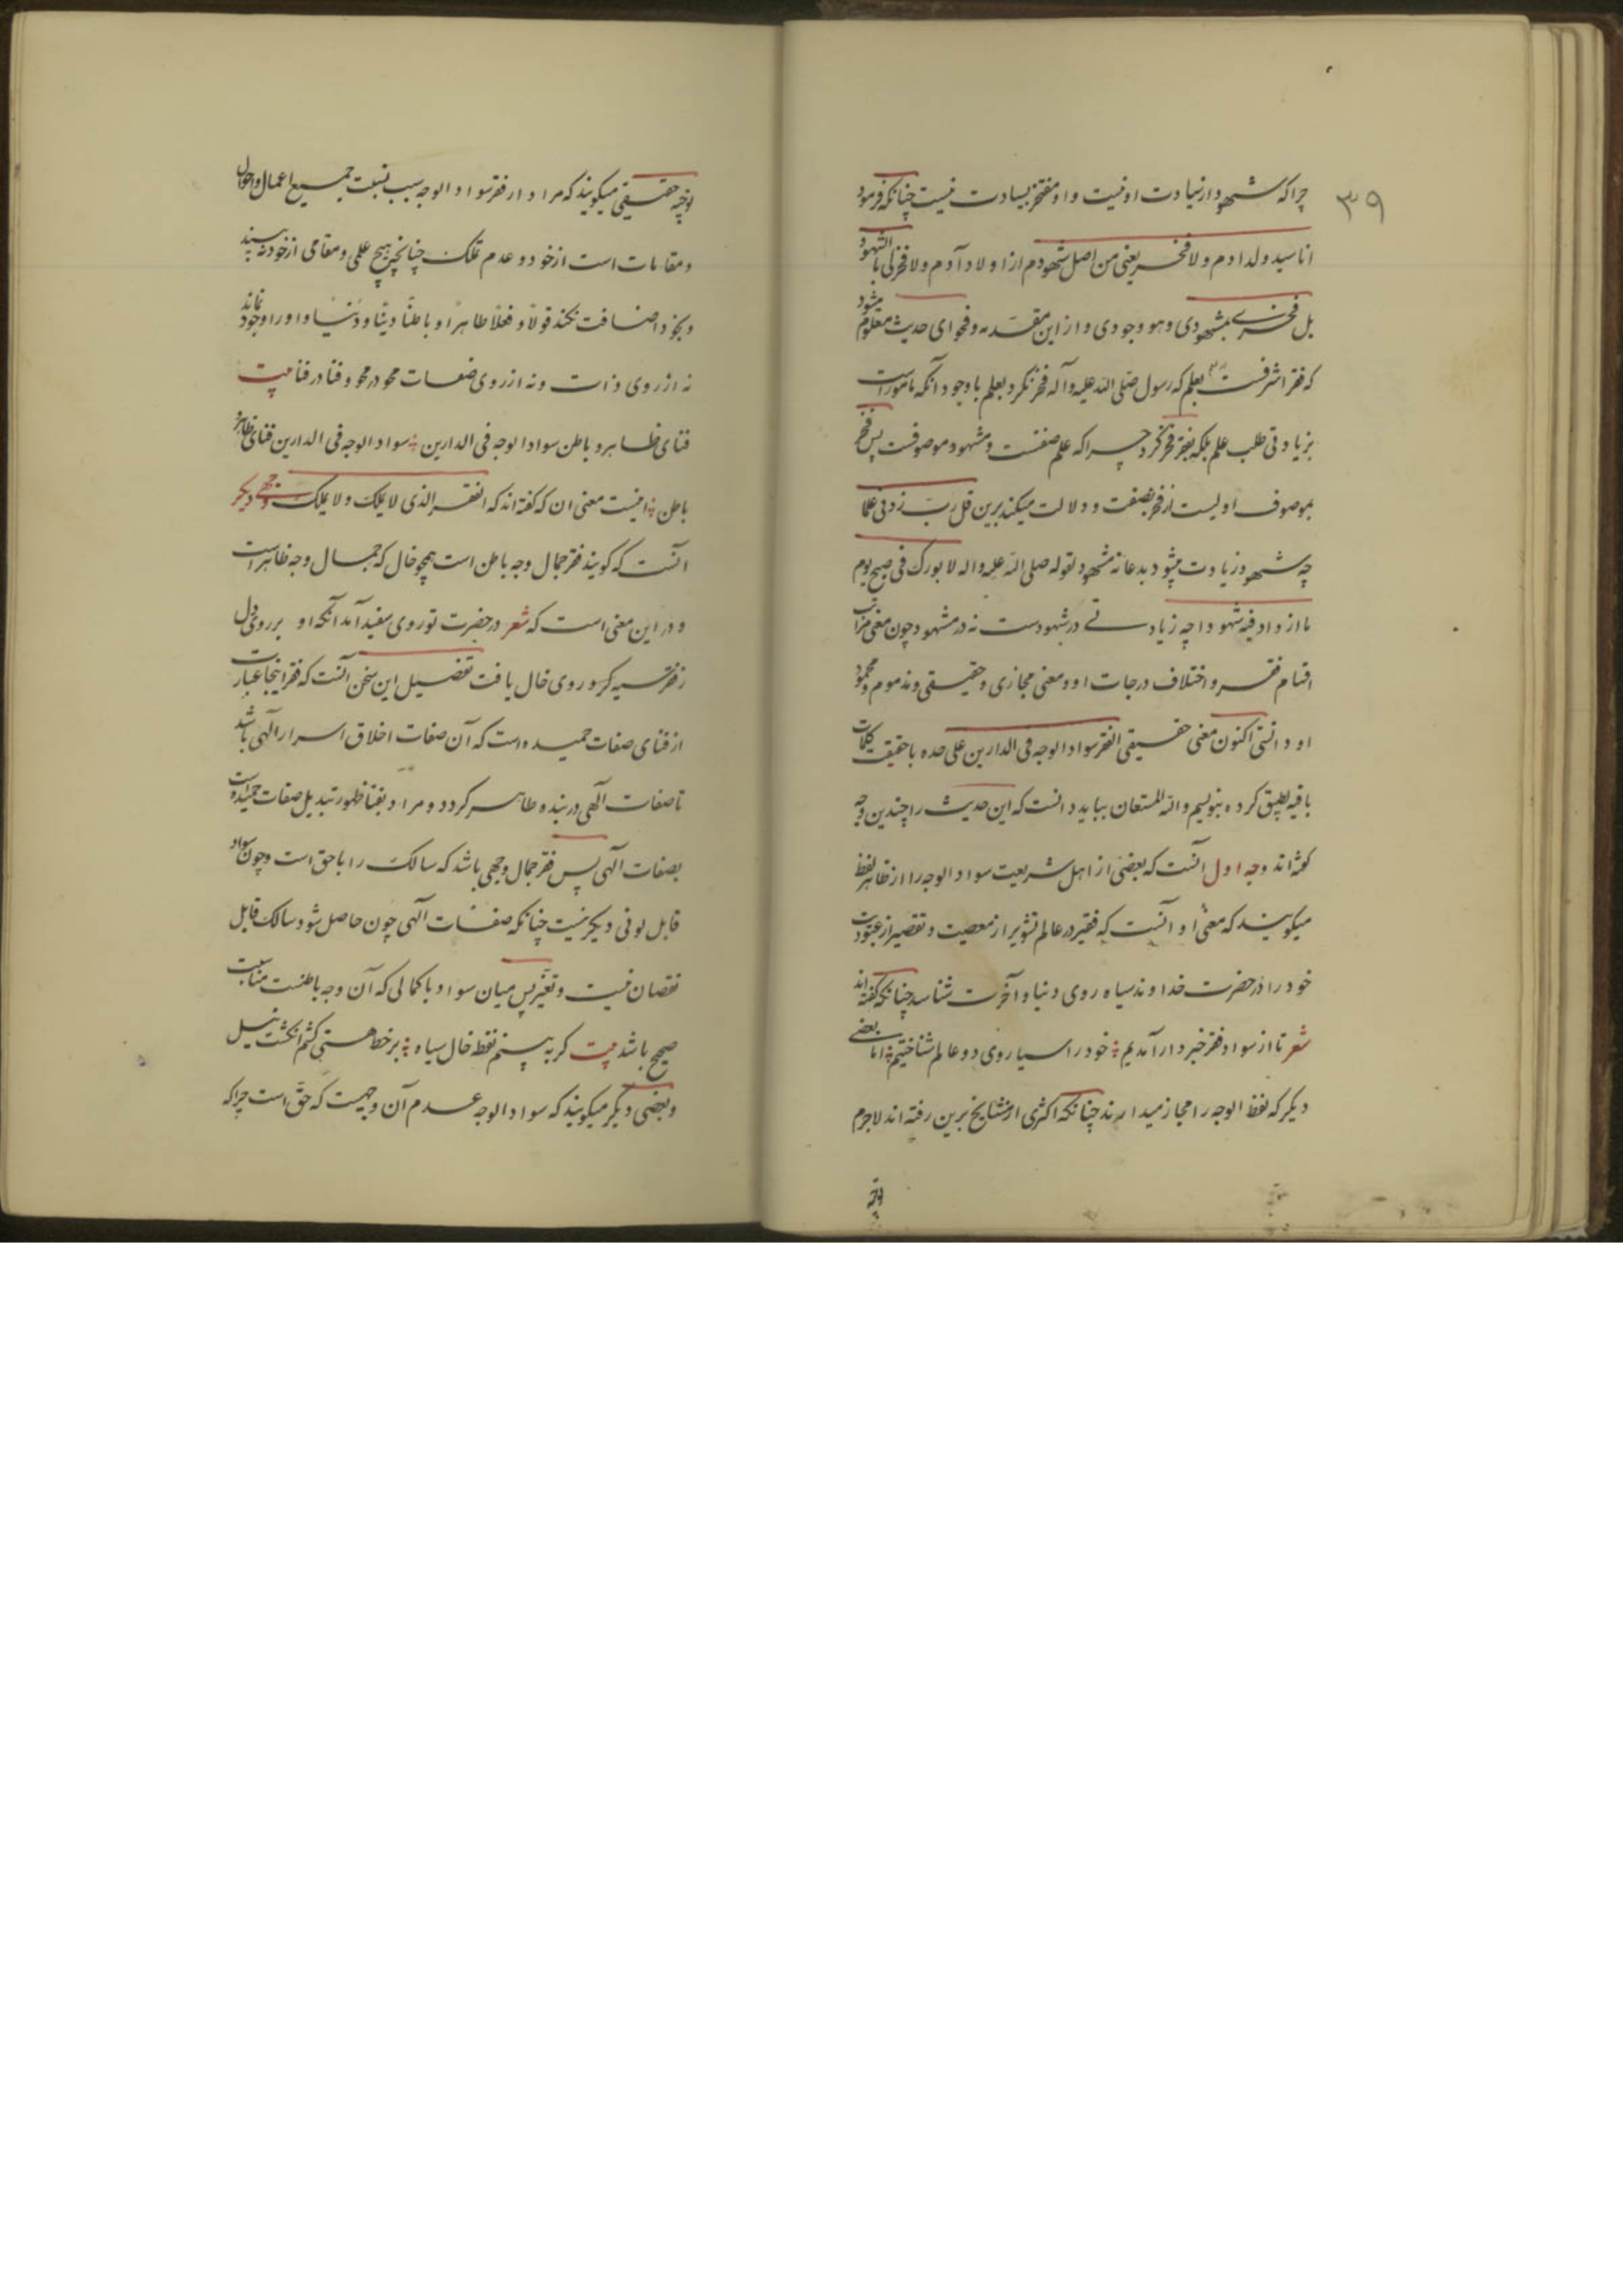 ۳۹
چراکه شهود از زیادت او نیست و او مفتخر بسیادت نیست چنانکه فرمود
انا سید ولد ادم و لا فخر یعنی من اصل شهودم از اولاد آدم و لا فخر لی بالشهود
بل فخری بمشهودی و هو وجودی و از این مقدمه و فحوای حدیث معلوم میشود
که فقر اشرفست بعلم که رسول صلی الله علیه و آله فخر نکرد بعلم با وجود آنکه مامور است
بزیادتی طلب علم بلکه بفقر فخر کرد چراکه علم صفتست و مشهود موصوفست پس فخر
بموصوف اولیست از فخر بصفت و دلالت میکند برین قل رب زدنی علما
چه شهود زیادت میشود بدعا نه مشهود لقوله صلی الله علیه و اله لا بورک فی صبح یوم
ما ازداد فیه شهودا چه زیادتی در شهودست نه در مشهود چون معنی مراتب
اقسام فقر و اختلاف درجات او و معنی مجازی و حقیقی و مذموم و محمود
او دانستی اکنون معنی حقیقی الفقر سواد الوجه فی الدارین علی حده با حقیقت کلمات
باقیه تطبیق کرده بنویسیم و الله المستعان بباید دانست که این حدیث را چندین وجه
گفته اند وجه اول آنست که بعضی از اهل شریعت سواد الوجه را از ظاهر لفظ
میکویند که معنی او آنست که فقیر در عالم تشویر از معصیت و تقصیر از عبودیت
خود را در حضرت خداوند سیاه روی دنیا و آخرت شناسد چنانکه گفته اند
شعر تا از سواد فقر خبردار آمدیم خود را سیاروی دو عالم شناختیم اما بعضی
دیکر که لفظ الوجه را مجاز میدارند چنانکه اکثری از مشایخ برین رفته اند لاجرم
بوجه
بوجه حقیقی میکویند که مراد از فقر سواد الوجه سبب نسبت جمیع اعمال و احوال
و مقامات است از خود و عدم تملک چنانچه هیچ عملی و مقامی از خود نه بیند
و بخود اضافت نکند قولا و فعلا ظاهرا و باطنا دینا و دنیا و او را وجود نماند
نه از روی ذات و نه از روی صفات محو در محو و فنا در فنا بیت
فنای ظاهر و باطن سواد الوجه فی الدارین سواد الوجه فی الدارین فنای ظاهر و
باطن اینست معنی ان که گفته اند که الفقر الذی لا یملک و لا یملک وجهی دیگر
آنست که کویند فقر جمال وجه باطن است همچو خال که جمال وجه ظاهر است
و در این معنی است که شعر در حضرت تو روی سفید آمد آنکه او بر روی دل
ز فقر سیه کرو روی خال یافت تفصیل این سخن آنست که فقر اینجا عبارت
از فنای صفات حمیده است که آن صفات اخلاق اسرار الهی باشد
تا صفات الهی در بنده ظاهر کردد و مراد بفنا ظهور تبدیل صفات حمیده است
بصفات الهی پس فقر جمال وجهی باشد که سالک را با حق است و چون سواد
قابل لونی دیکر نیست چنانکه صفات الهی چون حاصل شود سالک قابل
نقصان نیست و تغیر پس میان سواد با کمالی که آن وجه باطنست مناسبت
صحیح باشد بیت کر به بینم نقطه خال سیاه بر خط هستی کشم انکشت نیل
و بعضی دیگر میکویند که سواد الوجه عدم آن وجهیست که حق است چراکه